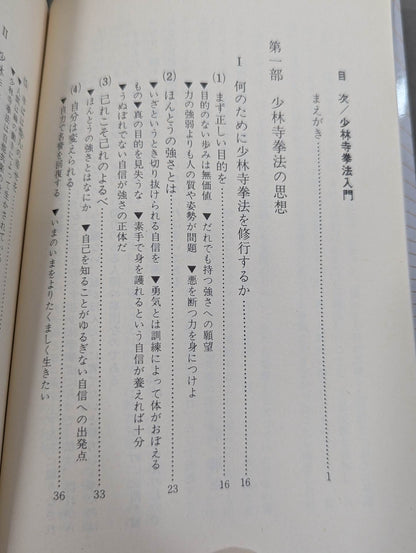 目次/少林寺拳法入門
まえがき……1
第一部 少林寺拳法の思想
Ⅰ 何のために少林寺拳法を修行するか……16
(1) まず正しい目的を……16
▼目的のない歩みは無価値 ▼だれでも持つ強さへの願望
▼力の強弱よりも人の質や姿勢が問題 ▼悪を断つ力を身につけよ
(2) ほんとうの強さとは……23
▼いざというとき切り抜けられる自信を ▼勇気とは訓練によって体がおぼえる
もの ▼真の目的を見失うな ▼素手で身を護れるという自信が養えれば十分
▼うぬぼれでない自信が強さの正体だ
(3) 己れこそ己れのよるべ……33
▼ほんとうの強さとはなにか ▼自己を知ることがゆるぎない自信への出発点
(4) 自分は変えられる……36
▼自力で名誉を回復する ▼いまのいまをよりたくましく生きたい
Ⅱ